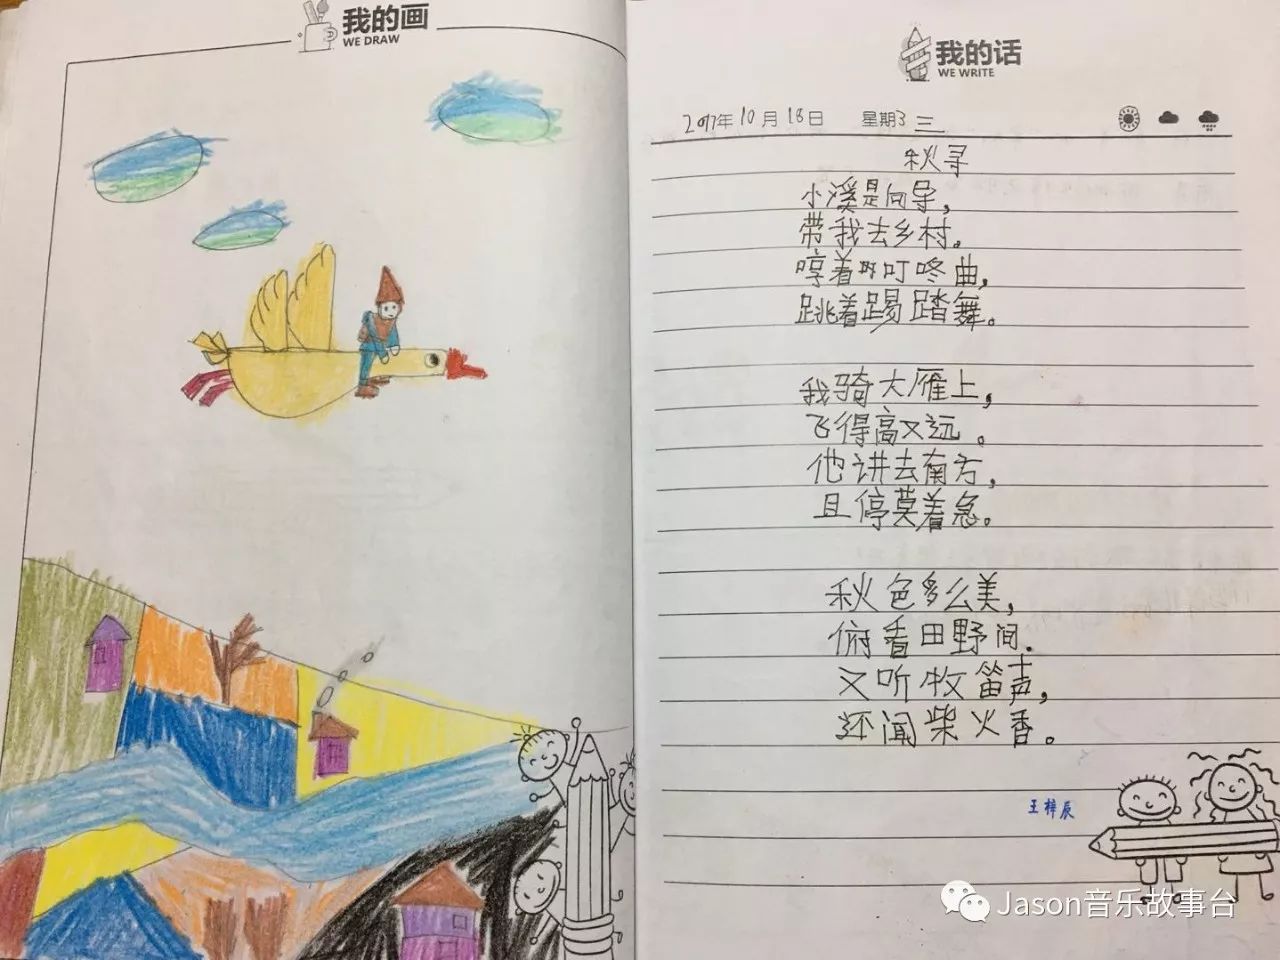 我的画
WE DRAW
我的话
WE WRITE
2017年10月18日 星期三
秋寻
小溪是向导，
带我去乡村。
哼着叮咚曲，
跳着踢踏舞。
我骑大雁上，
飞得高又远。
他讲去南方，
且停莫着急。
秋色多么美，
俯看田野间.
又听牧笛声，
还闻柴火香。
王梓辰
Jason音乐故事台